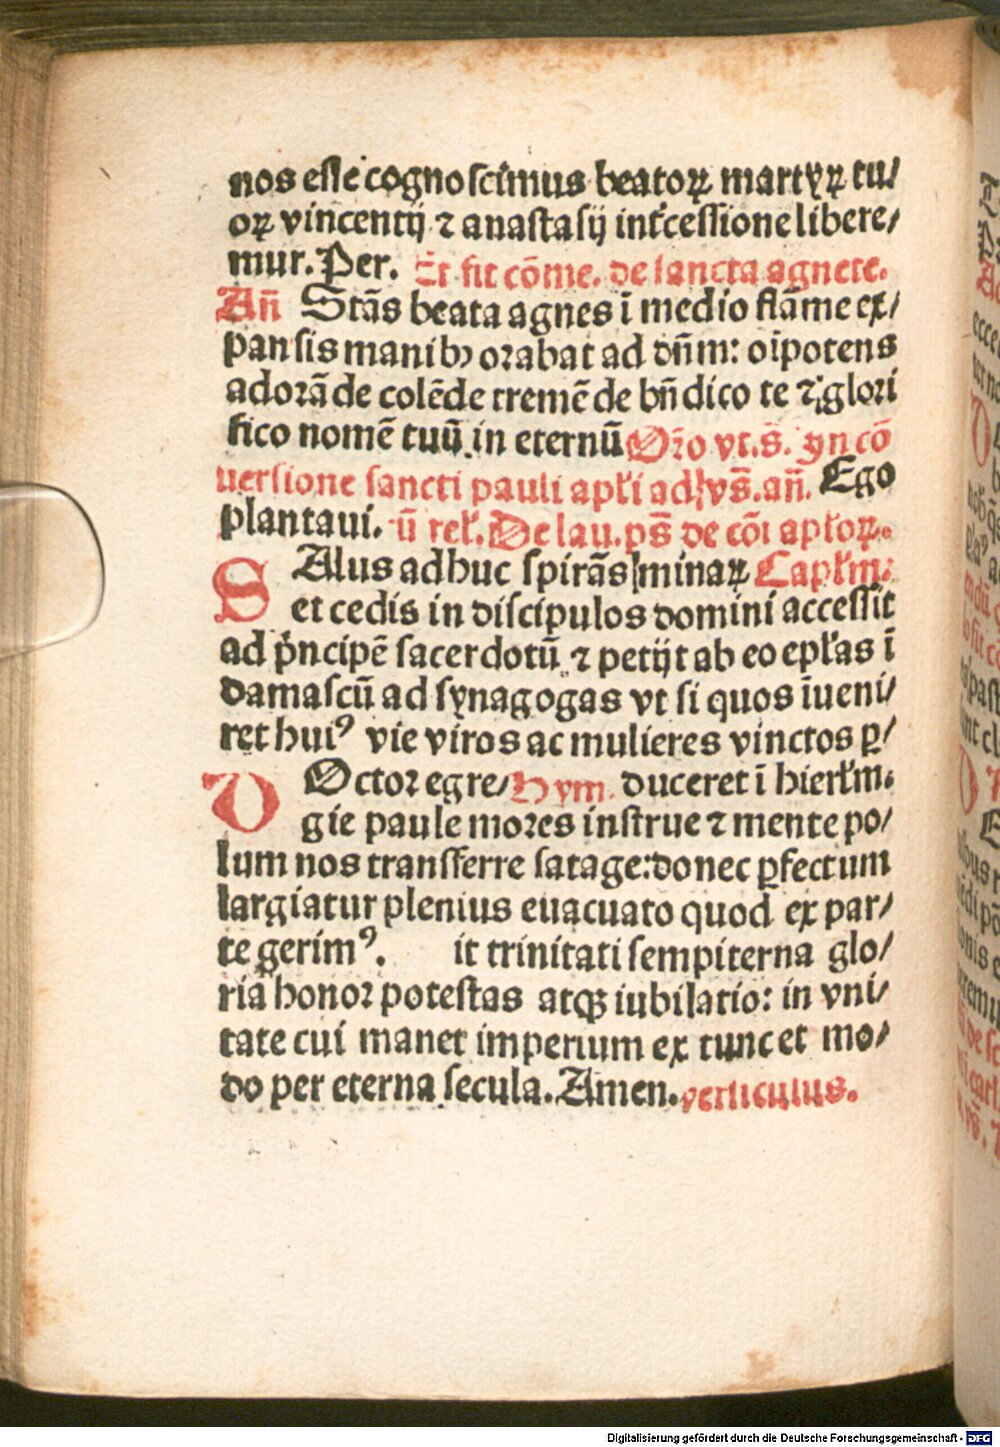 nos esse cognoscimus beatoꝝ martyꝝ tu/
oꝝ vincentij ⁊ anastasij int̃cessione libere/
mur. Per. Et fit cõme. de sancta agnete.
Añ Stãs beata agnes ĩ medio flãme ex/
pansis manibꝫ orabat ad dñm: oĩpotens
adorãde colẽde tremẽde bñdico te ⁊ glori
fico nomẽ tuũ in eternũ Oṝo vt.s̃. yn cõ
uersione sancti pauli apłi ad vs̃. añ. Ego
plantaui. ũ reł. De lau. ps̃ de cõi apłoꝝ.
SAlus adhuc spirãs minaꝝ Capłm:
et cedis in discipulos domini accessit
ad p̃ncipẽ sacerdotũ ⁊ petijt ab eo epłas ĩ
damascũ ad synagogas vt si quos ĩueni/
ret huiꝰ vie viros ac mulieres vinctos ꝑ/
DOctor egre/ Hym. duceret ĩ hierłm.
gie paule mores instrue ⁊ mente po/
lum nos transferre satage: donec ꝑfectum
largiatur plenius euacuato quod ex par/
te gerimꝰ. it trinitati sempiterna glo/
ria honor potestas atqꝫ iubilatio: in vni/
tate cui manet imperium ex tunc et mo/
do per eterna secula. Amen. versiculus.
Digitalisierung gefördert durch die Deutsche Forschungsgemeinschaft - DFG